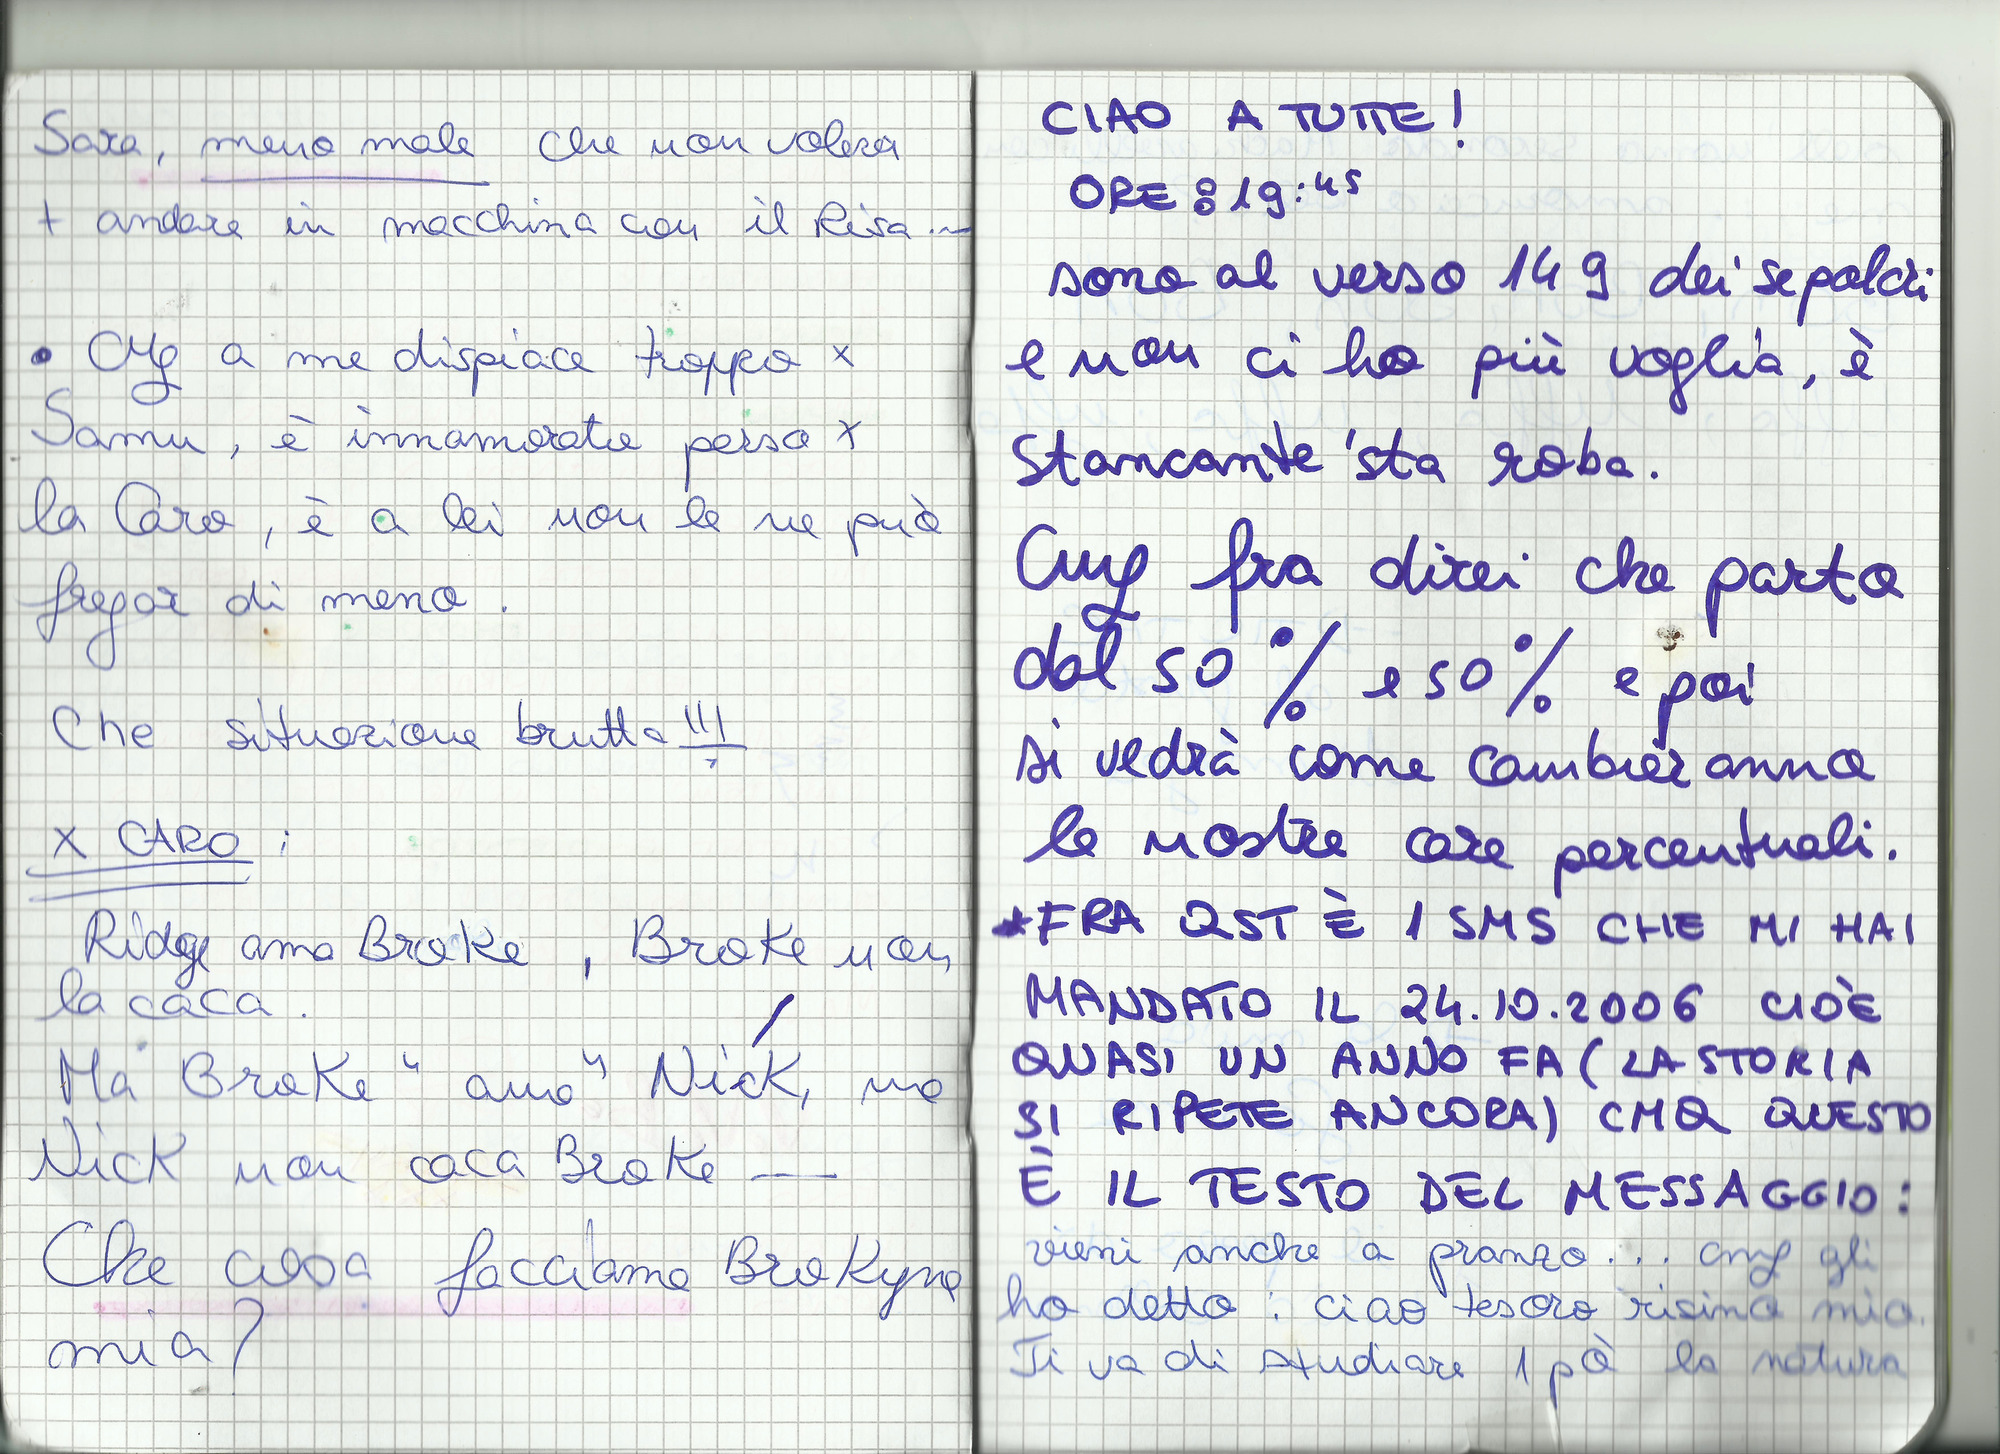 Sara, meno male che non voleva
+ andare in macchina con il Risa...
• Cmq a me dispiace troppo x
Samu, è innamorato perso x
la Caro, è a lei non le ne può
fregar di meno.
Che situazione brutta!!!
x CARO:
Ridge ama Broke, Broke non
la caca.
Ma Broke "ama" Nick, ma
Nick non caca Broke —
Che cosa facciamo Brokyna
mia?
CIAO A TUTTE!
ORE: 19:45
sono al verso 149 dei sepolcri
e non ci ho più voglia, è
stancante 'sta roba.
Cmq fra direi che parto
dal 50% e 50% e poi
si vedrà come cambieranno
le nostre care percentuali.
*FRA QST È 1 SMS CHE MI HAI
MANDATO IL 24.10.2006 CIOÈ
QUASI UN ANNO FA (LA STORIA
SI RIPETE ANCORA) CMQ QUESTO
È IL TESTO DEL MESSAGGIO:
vieni anche a pranzo... cmq gli
ho detto: ciao tesoro risino mio.
Ti va di studiare 1 pò la natura